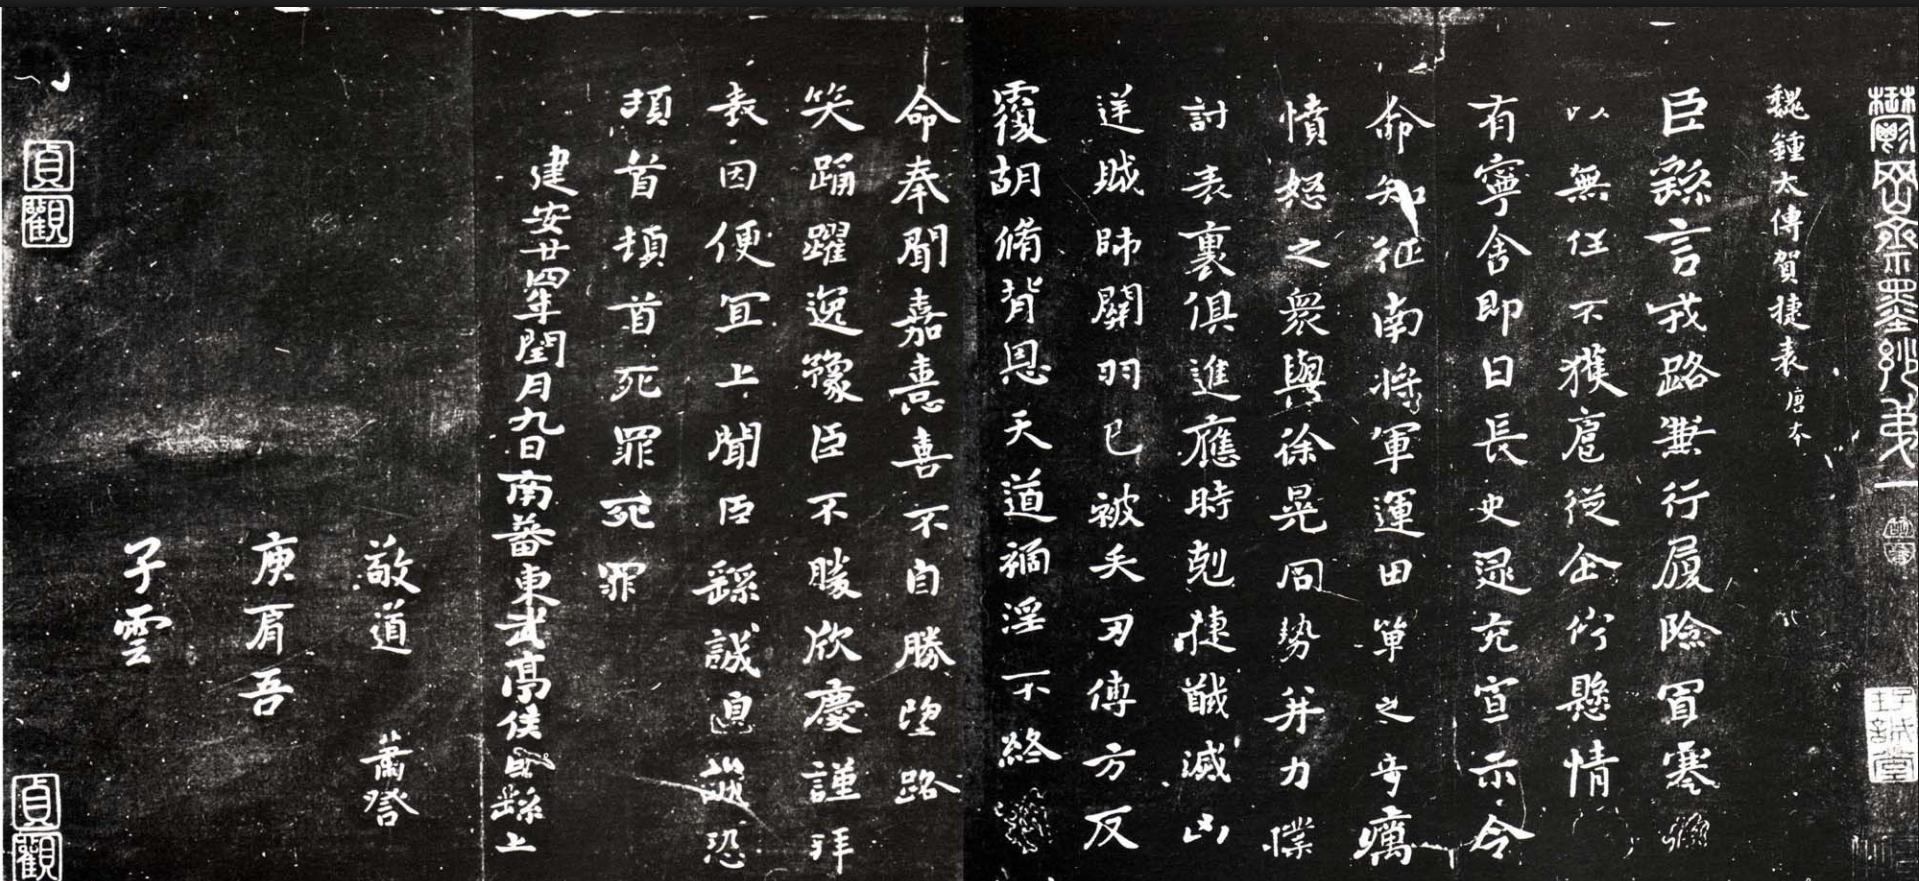 鬱岡齋墨玅弟一
魏鍾太傅賀捷表 唐本
臣繇言戎路兼行履險冒寒
以無任不獲扈從企佇懸情
有寧舍即日長史逯充宣示令
命知征南將軍運田單之奇厲
憤怒之衆與徐晃同勢并力撲
討表裏俱進應時剋捷馘滅凶
逆賊帥關羽已被矢刃傅方反
覆胡脩背恩天道禍淫不終
命奉聞嘉憙喜不自勝望路
笑踊躍逸豫臣不勝欣慶謹拜
表因便宜上聞臣繇誠皇誠恐
頓首頓首死罪死罪
建安廿四年閏月九日南蕃東武亭侯臣繇上
敬道
庾肩吾
子雲
貞觀
貞觀